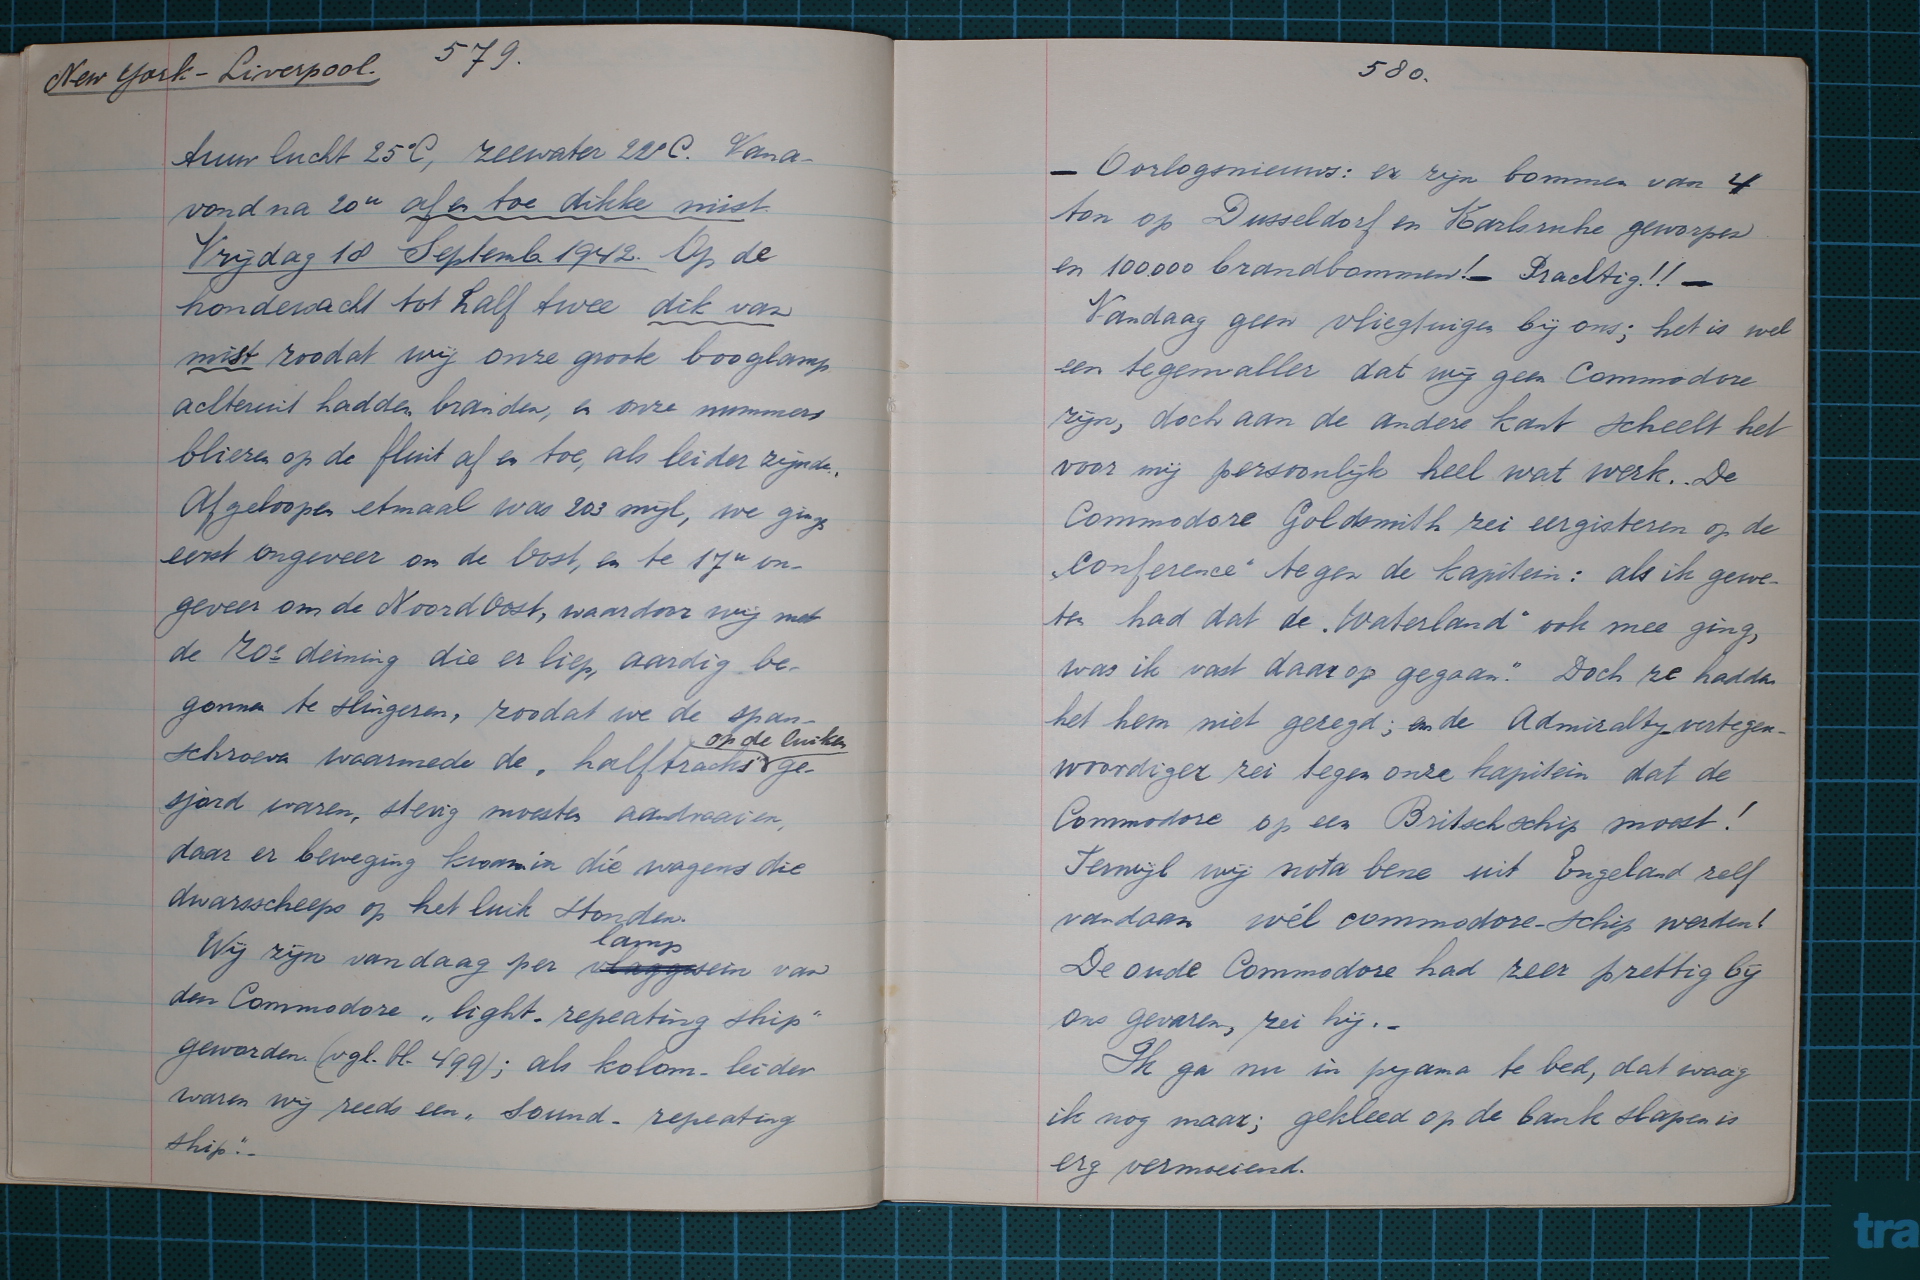 New York - Liverpool.
579.
tuur lucht 25°C, zeewater 22°C. Vana-
vond na 20u af en toe dikke mist.
Vrijdag 18 Septemb. 1942. Op de
hondewacht tot half twee dik van
mist zoodat wij onze groote booglamp
achteruit hadden branden, en onze nummers
bliezen op de fluit af en toe, als leider zijnde.
Afgeloopen etmaal was 203 mijl, we gingen
eerst ongeveer om de Oost, en te 17u on-
geveer om de NoordOost, waardoor wij met
de ZOe deining die er liep, aardig be-
gonnen te slingeren, zoodat we de span-
op de luiken
schroeven waarmede de „halftracks" ge-
sjord waren, stevig moesten aandraaien,
daar er beweging kwam in dié wagens die
dwarsscheeps op het luik stonden.
lamp
Wij zijn vandaag per vlaggesein van
den Commodore „light-repeating ship"
geworden. (vgl. bl. 499); als kolom-leider
waren wij reeds een „sound-repeating
ship".-
580.
- Oorlogsnieuws: er zijn bommen van 4
ton op Dusseldorf en Karlsruhe geworpen
en 100000 brandbommen! - Prachtig!! -
Vandaag geen vliegtuigen bij ons; het is wel
een tegenvaller dat wij geen Commodore
zijn, doch aan de andere kant scheelt het
voor mij persoonlijk heel wat werk.. De
Commodore Goldsmith zei eergisteren op de
„Conference" tegen de kapitein: als ik gewe-
ten had dat de „Waterland" ook mee ging,
was ik vast daar op gegaan." Doch ze hadden
het hem niet gezegd; en de Admiralty-vertegen-
woordiger zei tegen onze kapitein dat de
Commodore op een Britsch schip moest!
Terwijl wij nota bene uit Engeland zelf
vandaan wél commodore-schip werden!
De oude Commodore had zeer prettig bij
ons gevaren, zei hij. -
Ik ga nu in pyama te bed, dat waag
ik nog maar; gekleed op de bank slapen is
erg vermoeiend.
tra